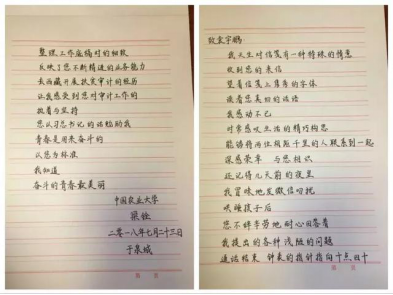 致袁宇鹏
我天生对信笺有一种特殊的情愫
收到您的来信
望着信笺上隽秀的字体
读着您真切的话语
我感动不已
对常感叹生活的精巧构思
能够将两位相距千里的人联系到一起
深感荣幸 与您相识
还记得几天前的夜里
我冒昧地发微信叨扰
哄睡孩子后
您不辞辛劳地耐心回答着
我提出的各种浅陋的问题
通话结束 钟表的指针指向十点四十
整理工作底稿时的细致
反映了您不断精进的业务能力
去西藏开展扶贫审计的经历
让我感受到您对审计工作的
执着与坚持
您以习总书记的话勉励我
青春是用来奋斗的
以您为标准
我知道
奋斗的青春最美丽
中国农业大学
梁
二零一八年七月二十三日
于泉城